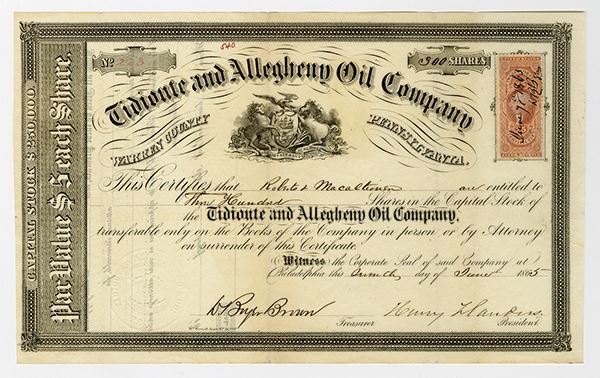 540
No 225
300 SHARES
Tidioute and Allegheny Oil Company
WARREN COUNTY PENNSYLVANIA.
CAPITAL STOCK $250,000.
Par Value $ Each Share.
This Certifies that are entitled to
Three Hundred Shares in the Capital Stock of
the Tidioute and Allegheny Oil Company,
transferable only on the Books of the Company in person or by Attorney
on surrender of this Certificate.
Witness the Corporate Seal of said Company at
Philadelphia this day of June 1865
Treasurer President